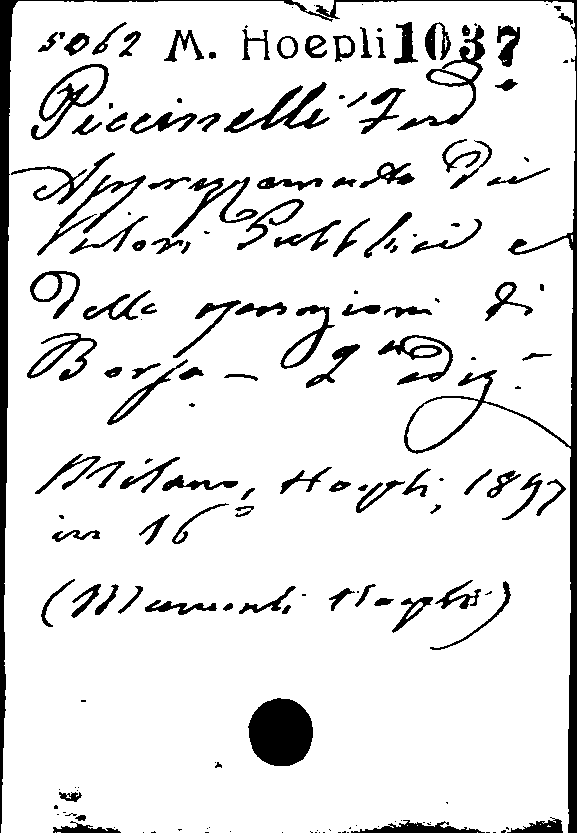 5062 M. Hoepli 1037
Piccinelli Ferd.º
Apprezzamento Dei
Valori Pubblici e
Delle operazioni di
Borsa - 2ª ediz.
Milano, Hoepli, 1897
in 16º
(Manuali Hoepli)